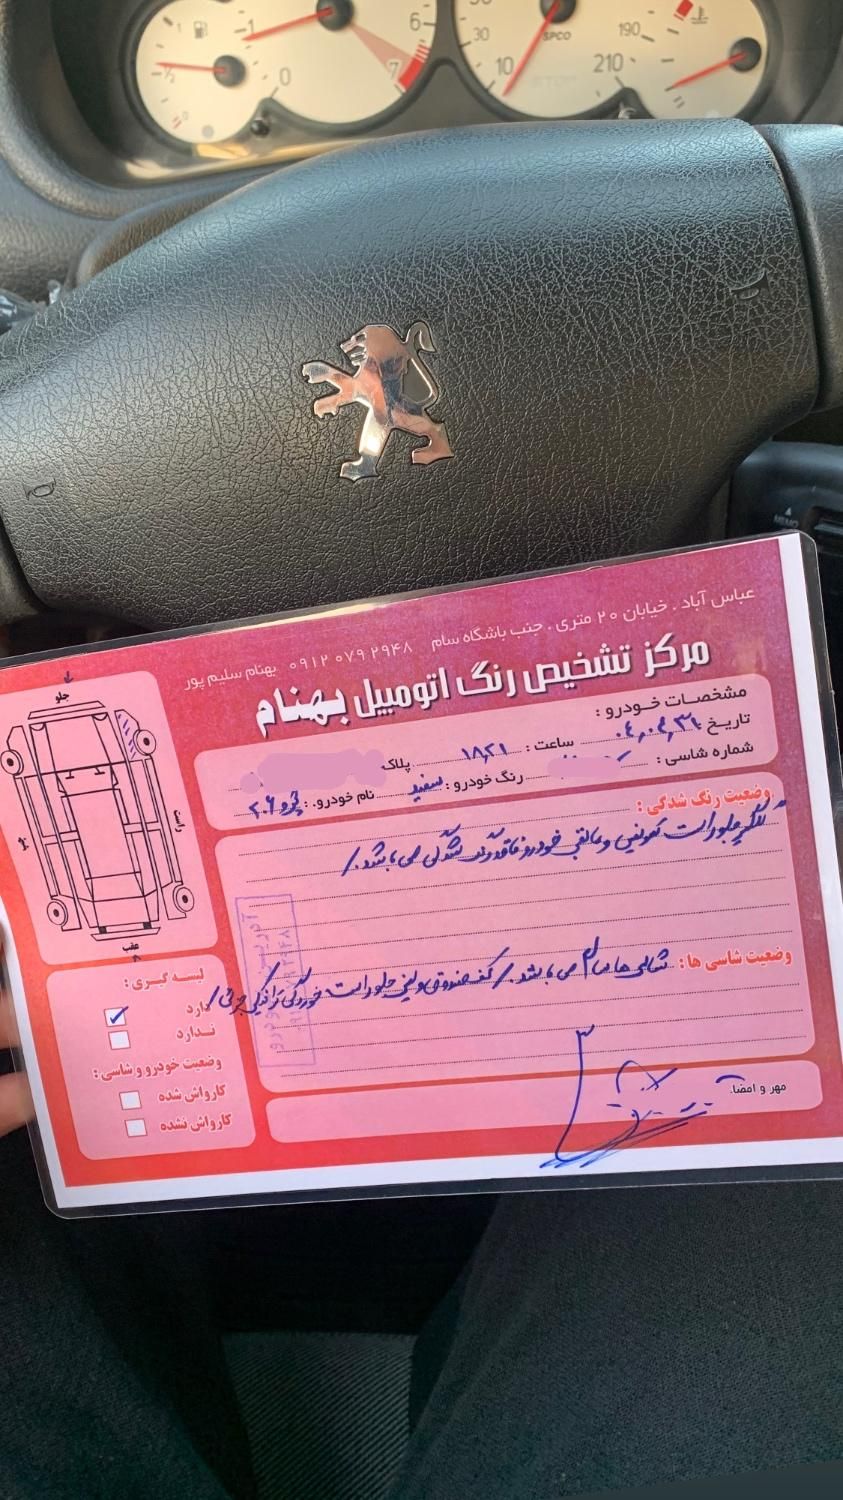 1
6
7
0
1/2
0
30
10
SPCO
190
210
STOP
MEMO
عباس آباد . خیابان ۲۰ متری . جنب باشگاه سام ۰۹۱۲ ۰۷۹ ۲۹۴۸ بهنام سلیم پور
مرکز تشخیص رنگ اتومبیل بهنام
مشخصات خودرو :
تاریخ ۰۴,۰۴,۳۱ ساعت : ۱۸,۲۱ پلاک
شماره شاسی : رنگ خودرو : سفید نام خودرو. : پژو ۲۰۶
وضعیت رنگ شدگی :
گلگیر جلو راست تعویض و مابقی خودرو فاقد رنگ شدگی می باشد./
وضعیت شاسی ها : شاسی ها سالم می باشد./ کف صندوق و سینی جلو راست خوردگی جزئی/
مهر و امضا.
جلو
راست
چپ
عقب
لیسه گیری :
دارد
ندارد
وضعیت خودرو و شاسی :
کارواش شده
کارواش نشده